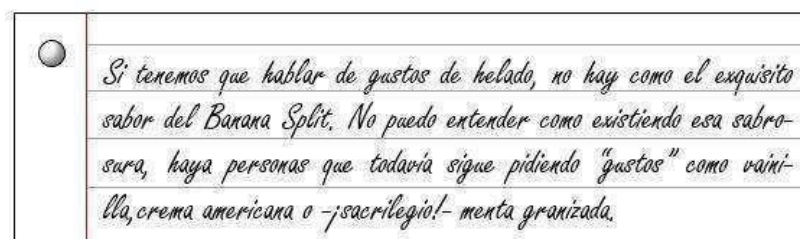 Si tenemos que hablar de gustos de helado, no hay como el exquisito
sabor del Banana Split. No puedo entender como existiendo esa sabro-
sura, haya personas que todavía sigue pidiendo "gustos" como vaini-
lla, crema americana o -¡sacrilegio!- menta granizada.